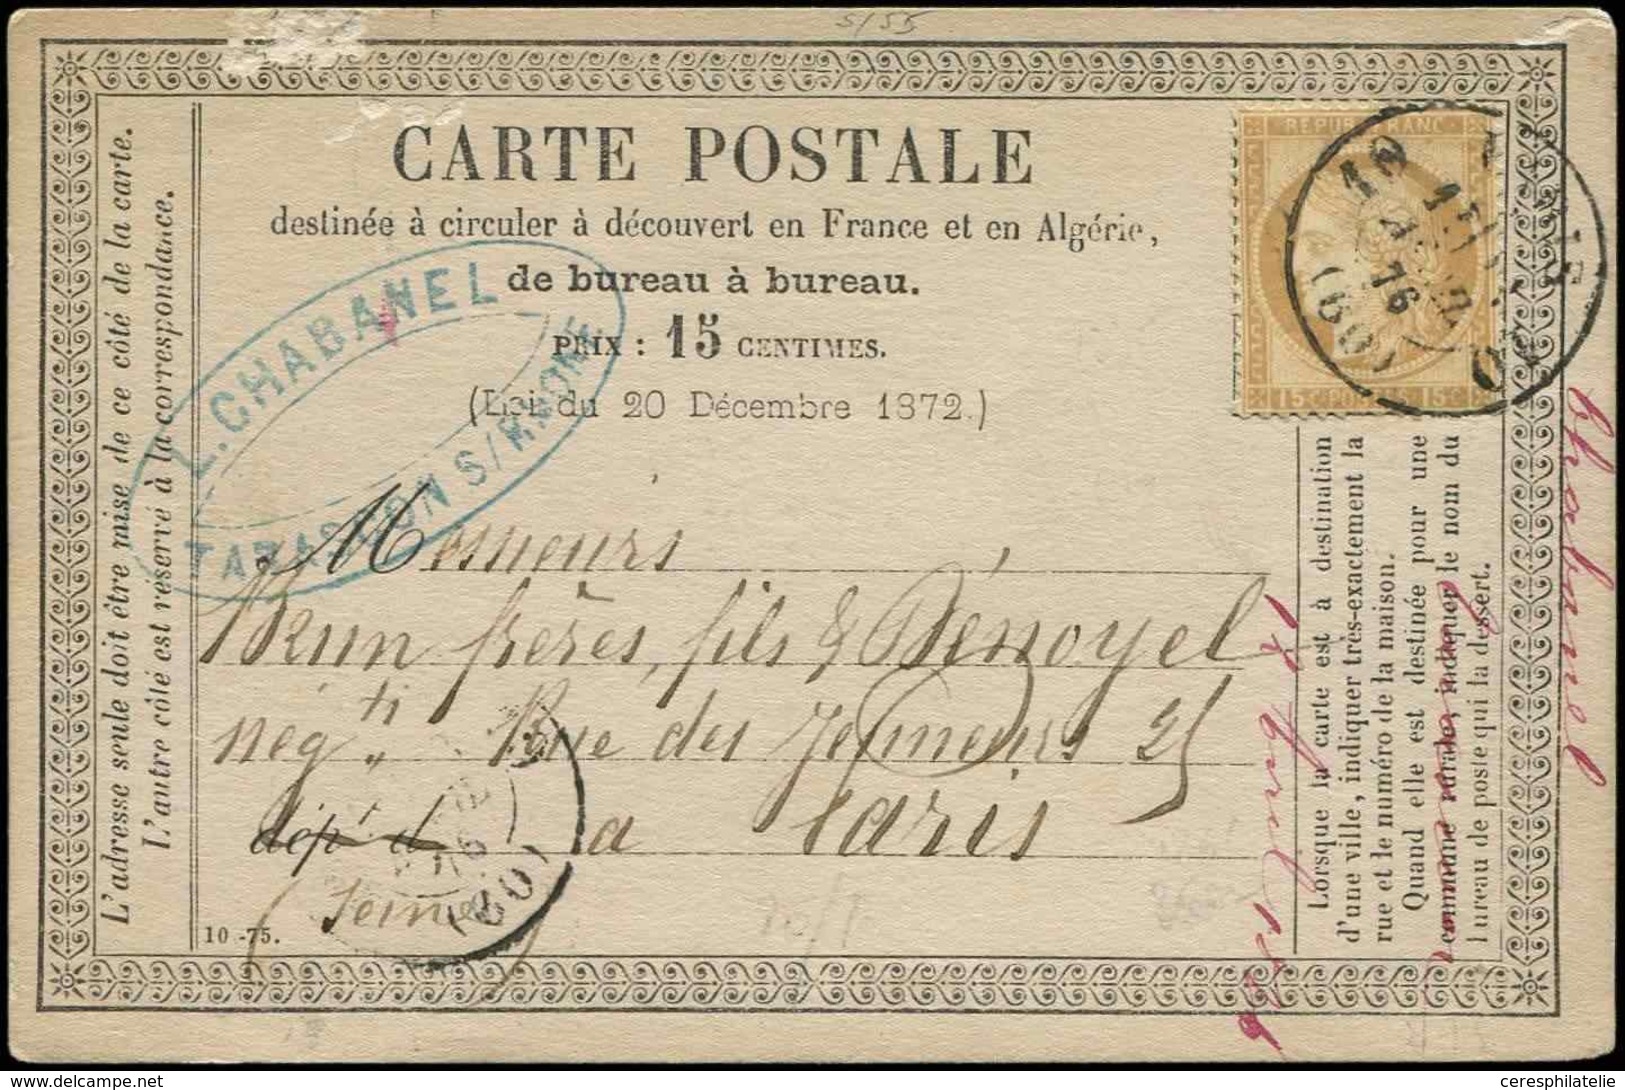 5/55
CARTE POSTALE
destinée à circuler à découvert en France et en Algérie,
de bureau à bureau.
PRIX : 15 CENTIMES.
(Loi du 20 Décembre 1872.)
L'adresse seule doit être mise de ce côté de la carte.
L'autre côté est réservé à la correspondance.
L. CHABANEL
TARASCON S/RHONE
REPUB FRANC
15 C POSTES 15 C
AVRIL
76
(60)
Messieurs
Brun frères, fils & Dénoyel
négts Rue des Jeuneurs 25
dépt d à Paris
Seine
76
(60)
10 -75.
Lorsque la carte est à destination
d'une ville, indiquer très-exactement la
rue et le numéro de la maison.
Quand elle est destinée pour une
commune rurale, indiquer le nom du
bureau de poste qui la dessert.
Chabanel
Tarascon
12 Avril 1876
ceresphilatelie
delcampe.net